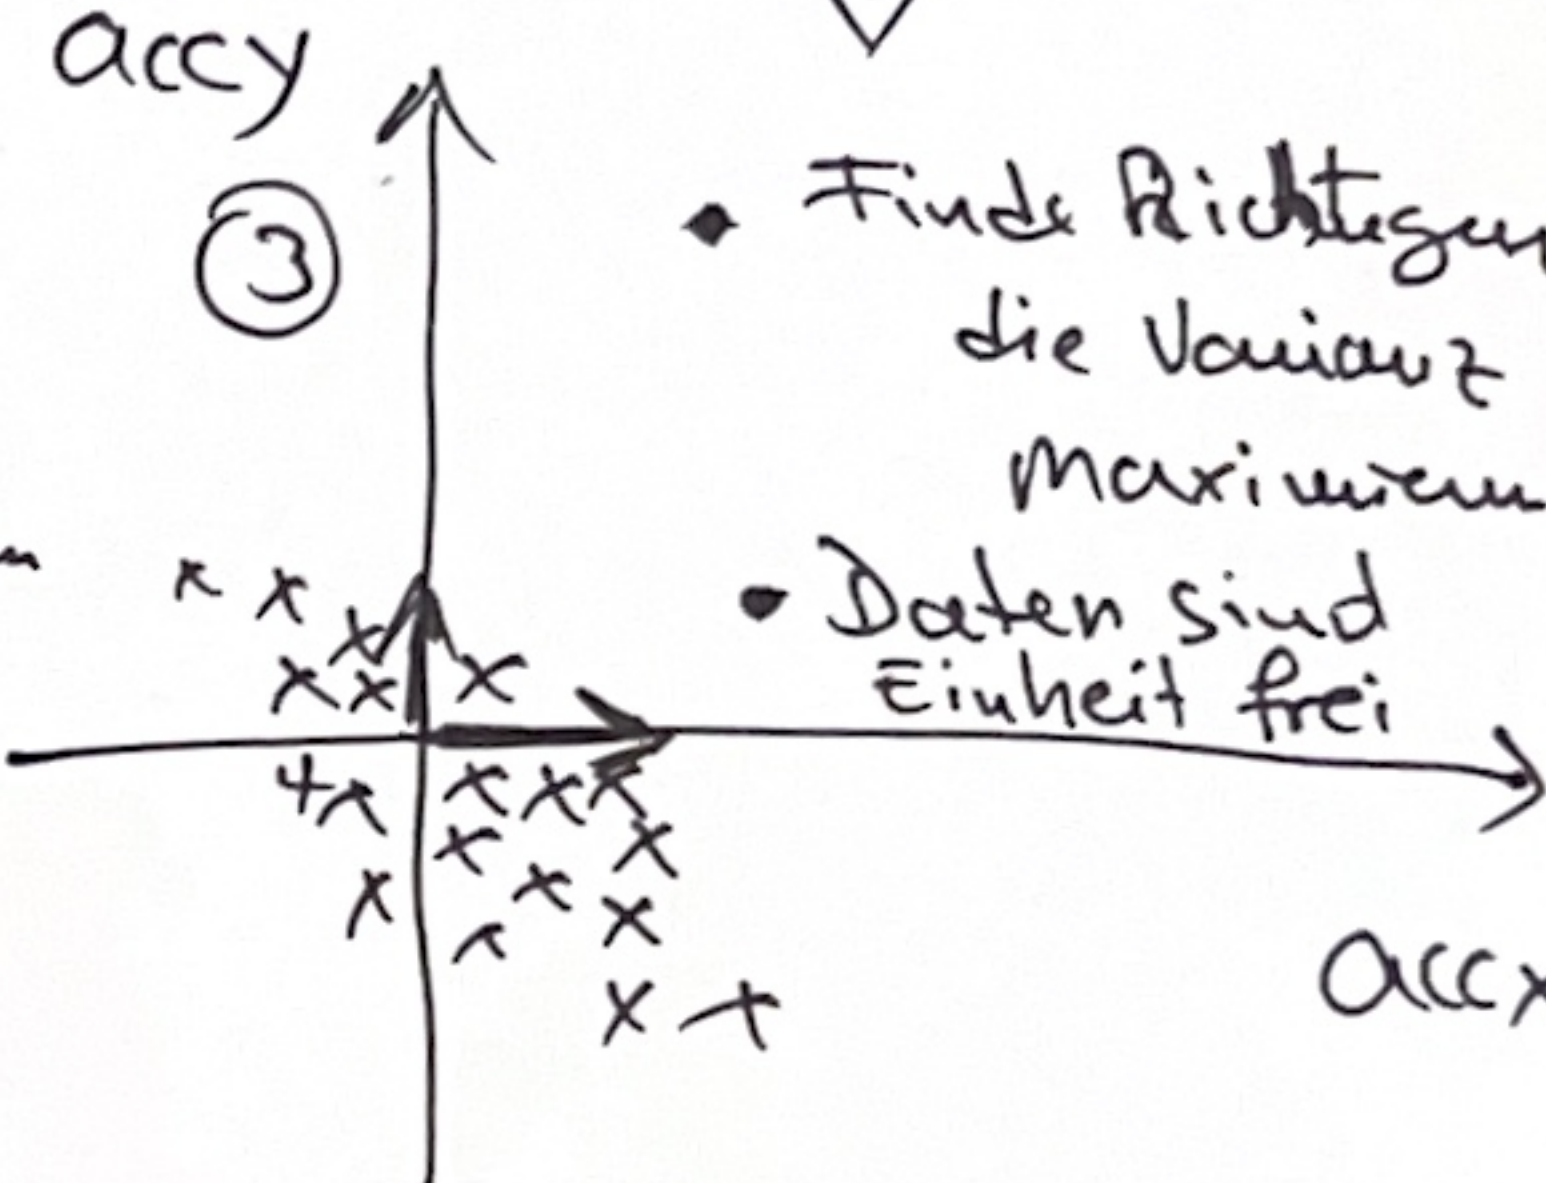 accy
③
• Finde Richtugen
die Varianz
maximieren
• Daten sind
Einheit frei
accx